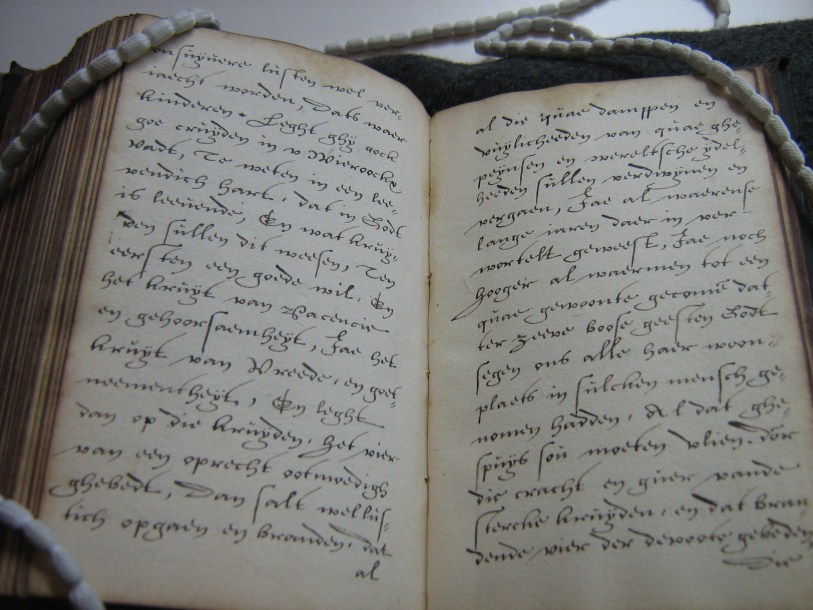 en suyuere lusten wel ver-
iaecht worden, Dats waer
kinderen. Leght ghÿ oock
goe cruyden in v Wieroockx
vadt, Te weten in een lee-
vendich hart, dat in Godt
is leeuende, En wat kruÿ-
den sullen dit weesen, Ten
eersten een goede wil, En
het kruÿt van Pacencie
en gehoorsaemheÿt, Jae het
kruÿt van Vreede, en goet-
neementheÿt, En leght
dan op die kruÿden, het vier
van een oprecht ootmoedigh
ghebedt, Dan salt wellüs-
tich opgaen en branden, dat
al
al die quae damppen en
vuÿlicheeden van quae ghe-
peÿnsen en wereltsche ÿdel-
heeden sullen verdwÿnen en
vergaen, Jae al waerense
lange iaren daer in ver-
wortelt geweest, Jae noch
hooger al waermen tot een
quae gewoonte gecomē dat-
ter zeeve boose geesten Godt
segen ons alle haer woon-
plaets in sulcken mensch ge-
nomen hadden, Al dat ghe-
spuÿs soü moeten vlien, dor
die cracht en guer vande
stercke kruÿden, en dat bran-
dende vier der devoote gebeden
Die